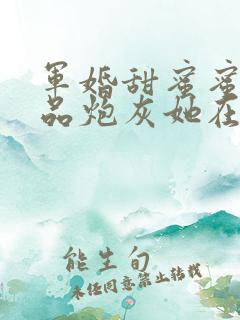 军婚甜蜜蜜
品炮灰她在
能生旬
未经同意禁止转载